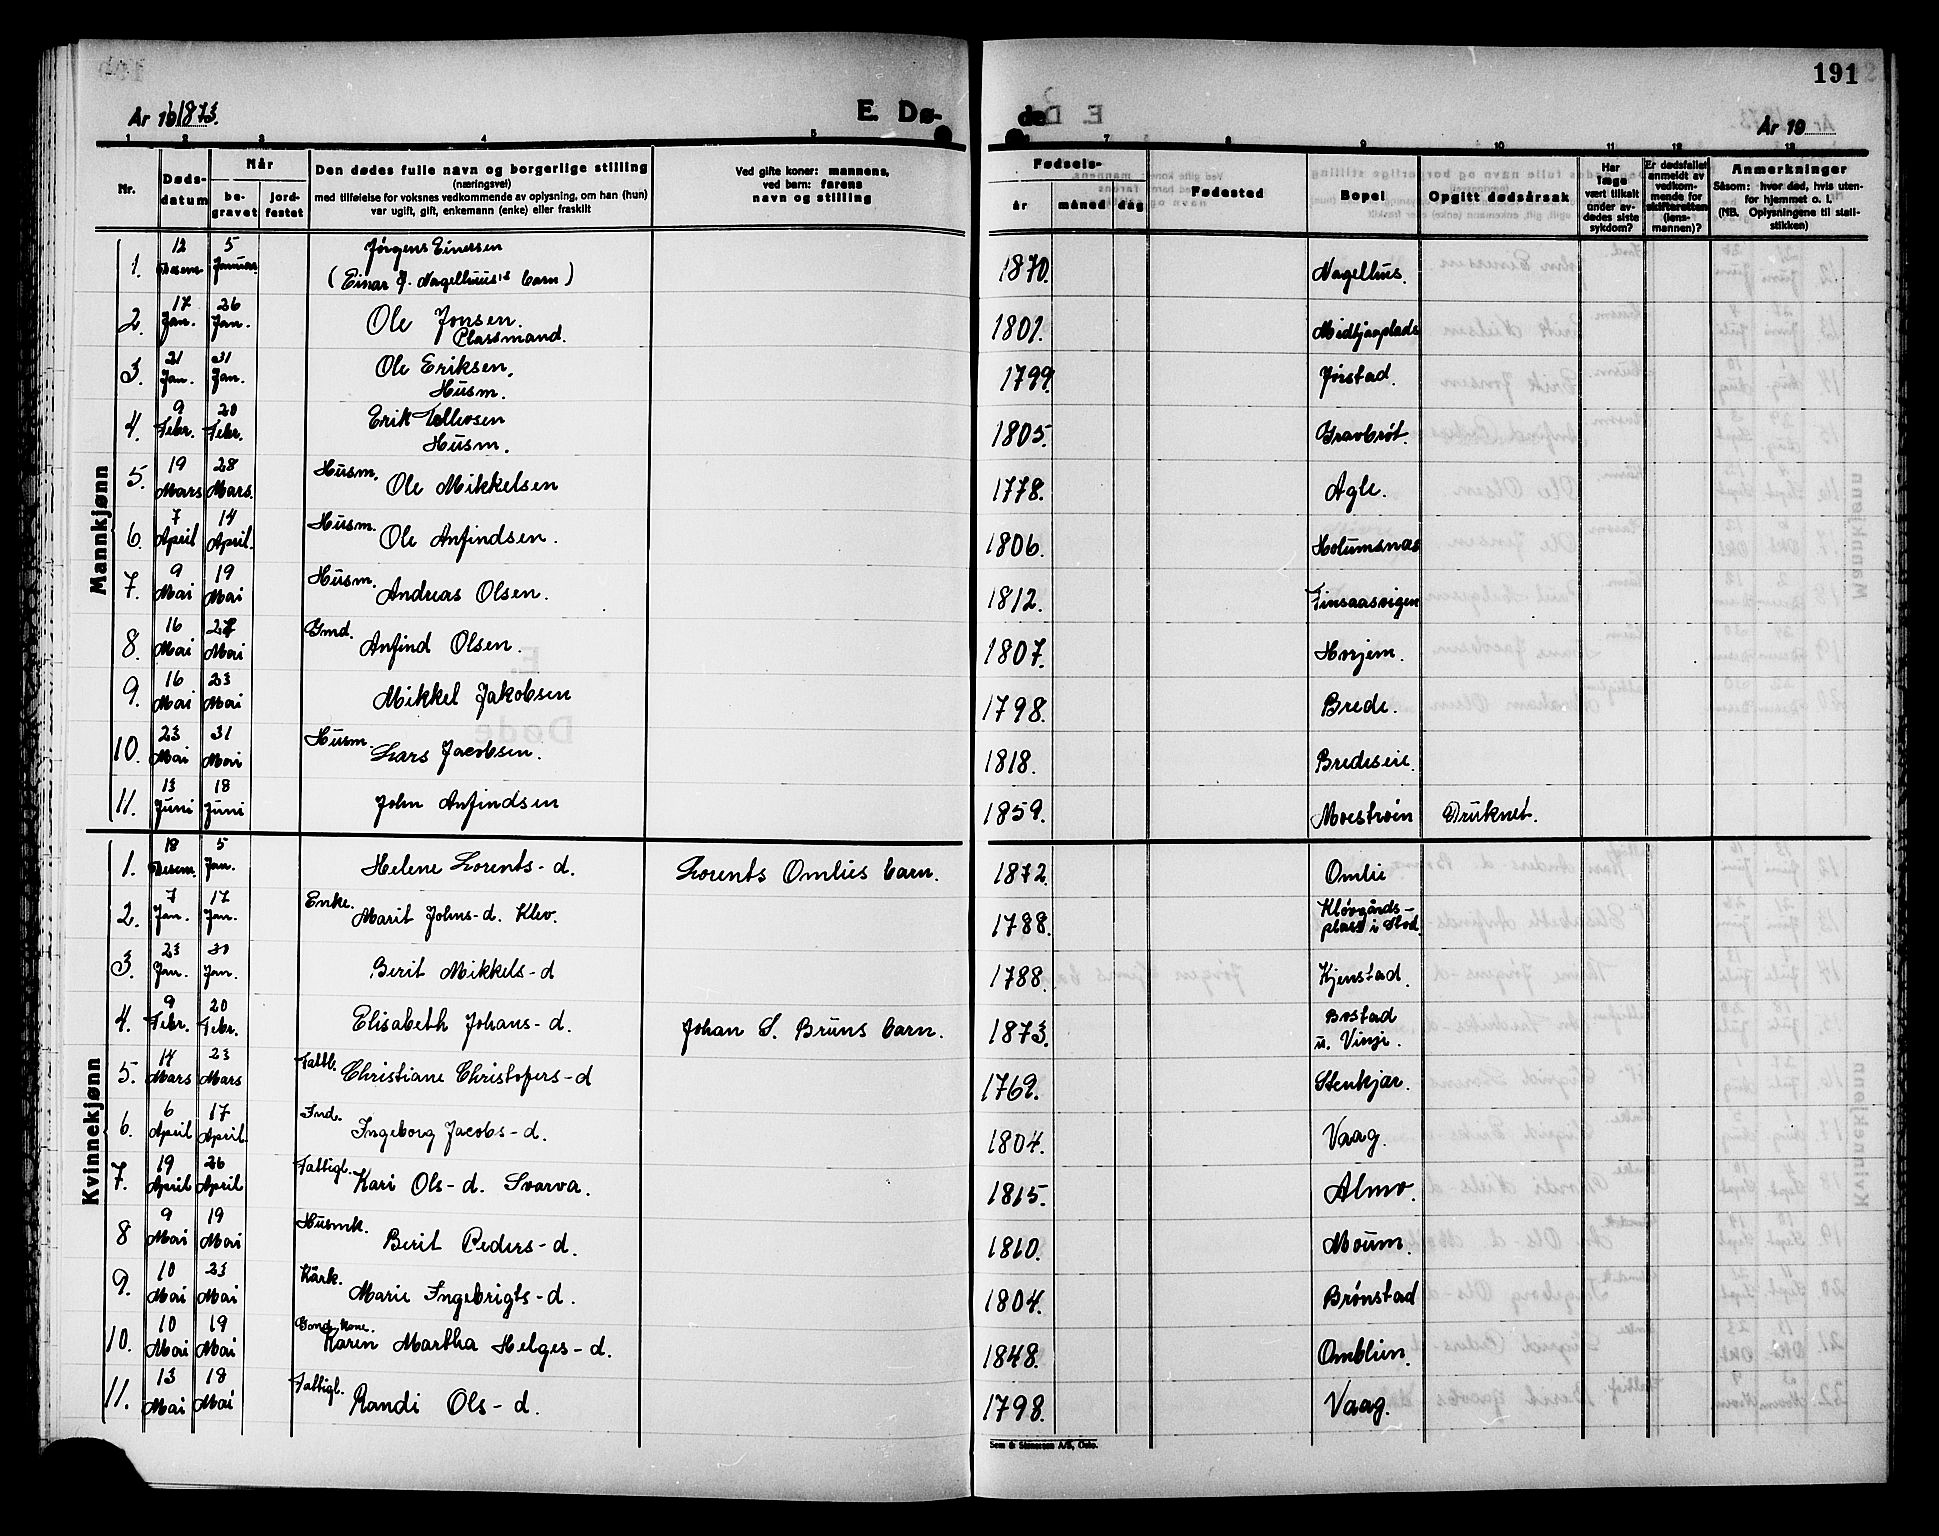 191
År 1873.
E. Dø-
de
År 19
1 2 3 4 5
6 7 8 9 10 11 12 13
Nr.
Døds-
datum
Når
be-
gravet
jord-
festet
Den dødes fulle navn og borgerlige stilling
(næringsvei)
med tilføielse for voksnes vedkommende av oplysning, om han (hun)
var ugift, gift, enkemann (enke) eller fraskilt
Ved gifte koner: mannens,
ved barn: farens
navn og stilling
Fødsels-
år måned dag
Fødested
Bopel
Opgitt dødsårsak
Har
læge
vært tilkalt
under av-
dødes siste
sykdom?
Er dødsfallet
anmeldt av
vedkom-
mende for
skifteretten
(lens-
mannen)?
Anmerkninger
Såsom: hvor død, hvis uten-
for hjemmet o. l.
(NB. Oplysningene til stati-
stikken)
Mannkjønn
1. 12 Desem 5 Januar Jörgens Einersen
(Einar J. Nagelhuus's barn) 1870. Nagelhus.
2. 17 Jan. 26 Jan. Ole Jonsen.
Plassmand. 1801. Midtjarplads
3. 21 Jan. 31 Jan. Ole Eriksen,
Husm. 1799. Jørstad.
4. 9 Febr. 20 Febr. Erik Tollevsen
Husm. 1805. Gravbröt.
5. 19 Mars 28 Mars. Husm. Ole Mikkelsen 1778. Agle.
6. 7 April 14 April. Husm. Ole Anfindsen. 1806. Holumsnas
7. 9 Mai 19 Mai Husm. Andreas Olsen. 1812. Finsaasvigen
8. 16 Mai 27 Mai Gmd. Anfind Olsen. 1807. Horjem.
9. 16 Mai 23 Mai Mikkel Jakobsen 1798. Brede.
10. 23 Mai 31 Mai Husm. Lars Jacobsen. 1818. Bredeseie.
11. 13 Juni 18 Juni John Anfindsen 1859. Moeströen Druknet.
Kvinnekjønn
1. 18 Desem. 5 Jan. Helene Lorents-d. Lorents Omlies barn. 1872. Omlie
2. 7 Jan. 17 Jan. Enke. Marit Johns-d. Klev. 1788. Klövgårds-
plads i Stod.
3. 23 Jan. 30 Jan. Berit Mikkels-d 1788. Kjenstad.
4. 9 Febr. 20 Febr. Elisabeth Johans-d. Johan S. Bruns barn. 1873. Bostad
u. Vinje.
5. 14 Mars 23 Mars Fattl. Christiane Christofers-d 1769. Stenkjar.
6. 6 April 17 April. Ind. Ingeborg Jacobs-d. 1804. Vaag.
7. 19 April 26 April Fattigl. Kari Ols-d. Svarva. 1815. Almo.
8 9 Mai 19 Mai Husmk. Berit Peders-d. 1810. Moum.
9. 10 Mai 23 Mai Kårk. Marie Ingebrigts-d. 1804. Brönstad
10. 10 Mai 19 Mai Gmd. Kone. Karen Martha Helges-d. 1848. Omblien.
11. 13 Mai 18 Mai Fattigl. Randi Ols-d. 1798. Vaag.
Sem & Stenersen A/S, Oslo.